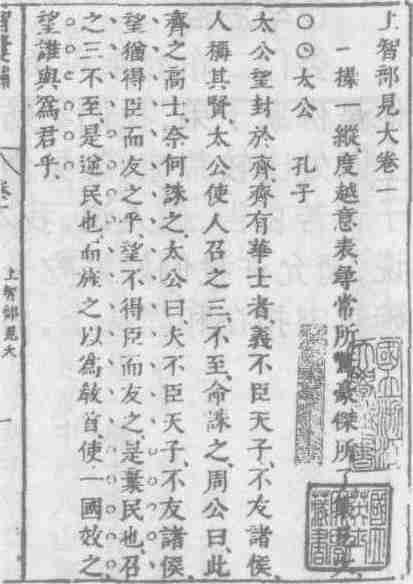 上智部見大卷一
一操一縱度越意表尋常所驚豪傑所了
〇〇太公　孔子
太公望封於齊齊有華士者義不臣天子不友諸侯
人稱其賢太公使人召之三不至命誅之周公曰此
齊之高士奈何誅之太公曰夫不臣天子不友諸侯
望猶得臣而友之乎望不得臣而友之是棄民也召
之三不至是逆民也而旌之以爲教首使一國效之
望誰與爲君乎
上智部見大
一